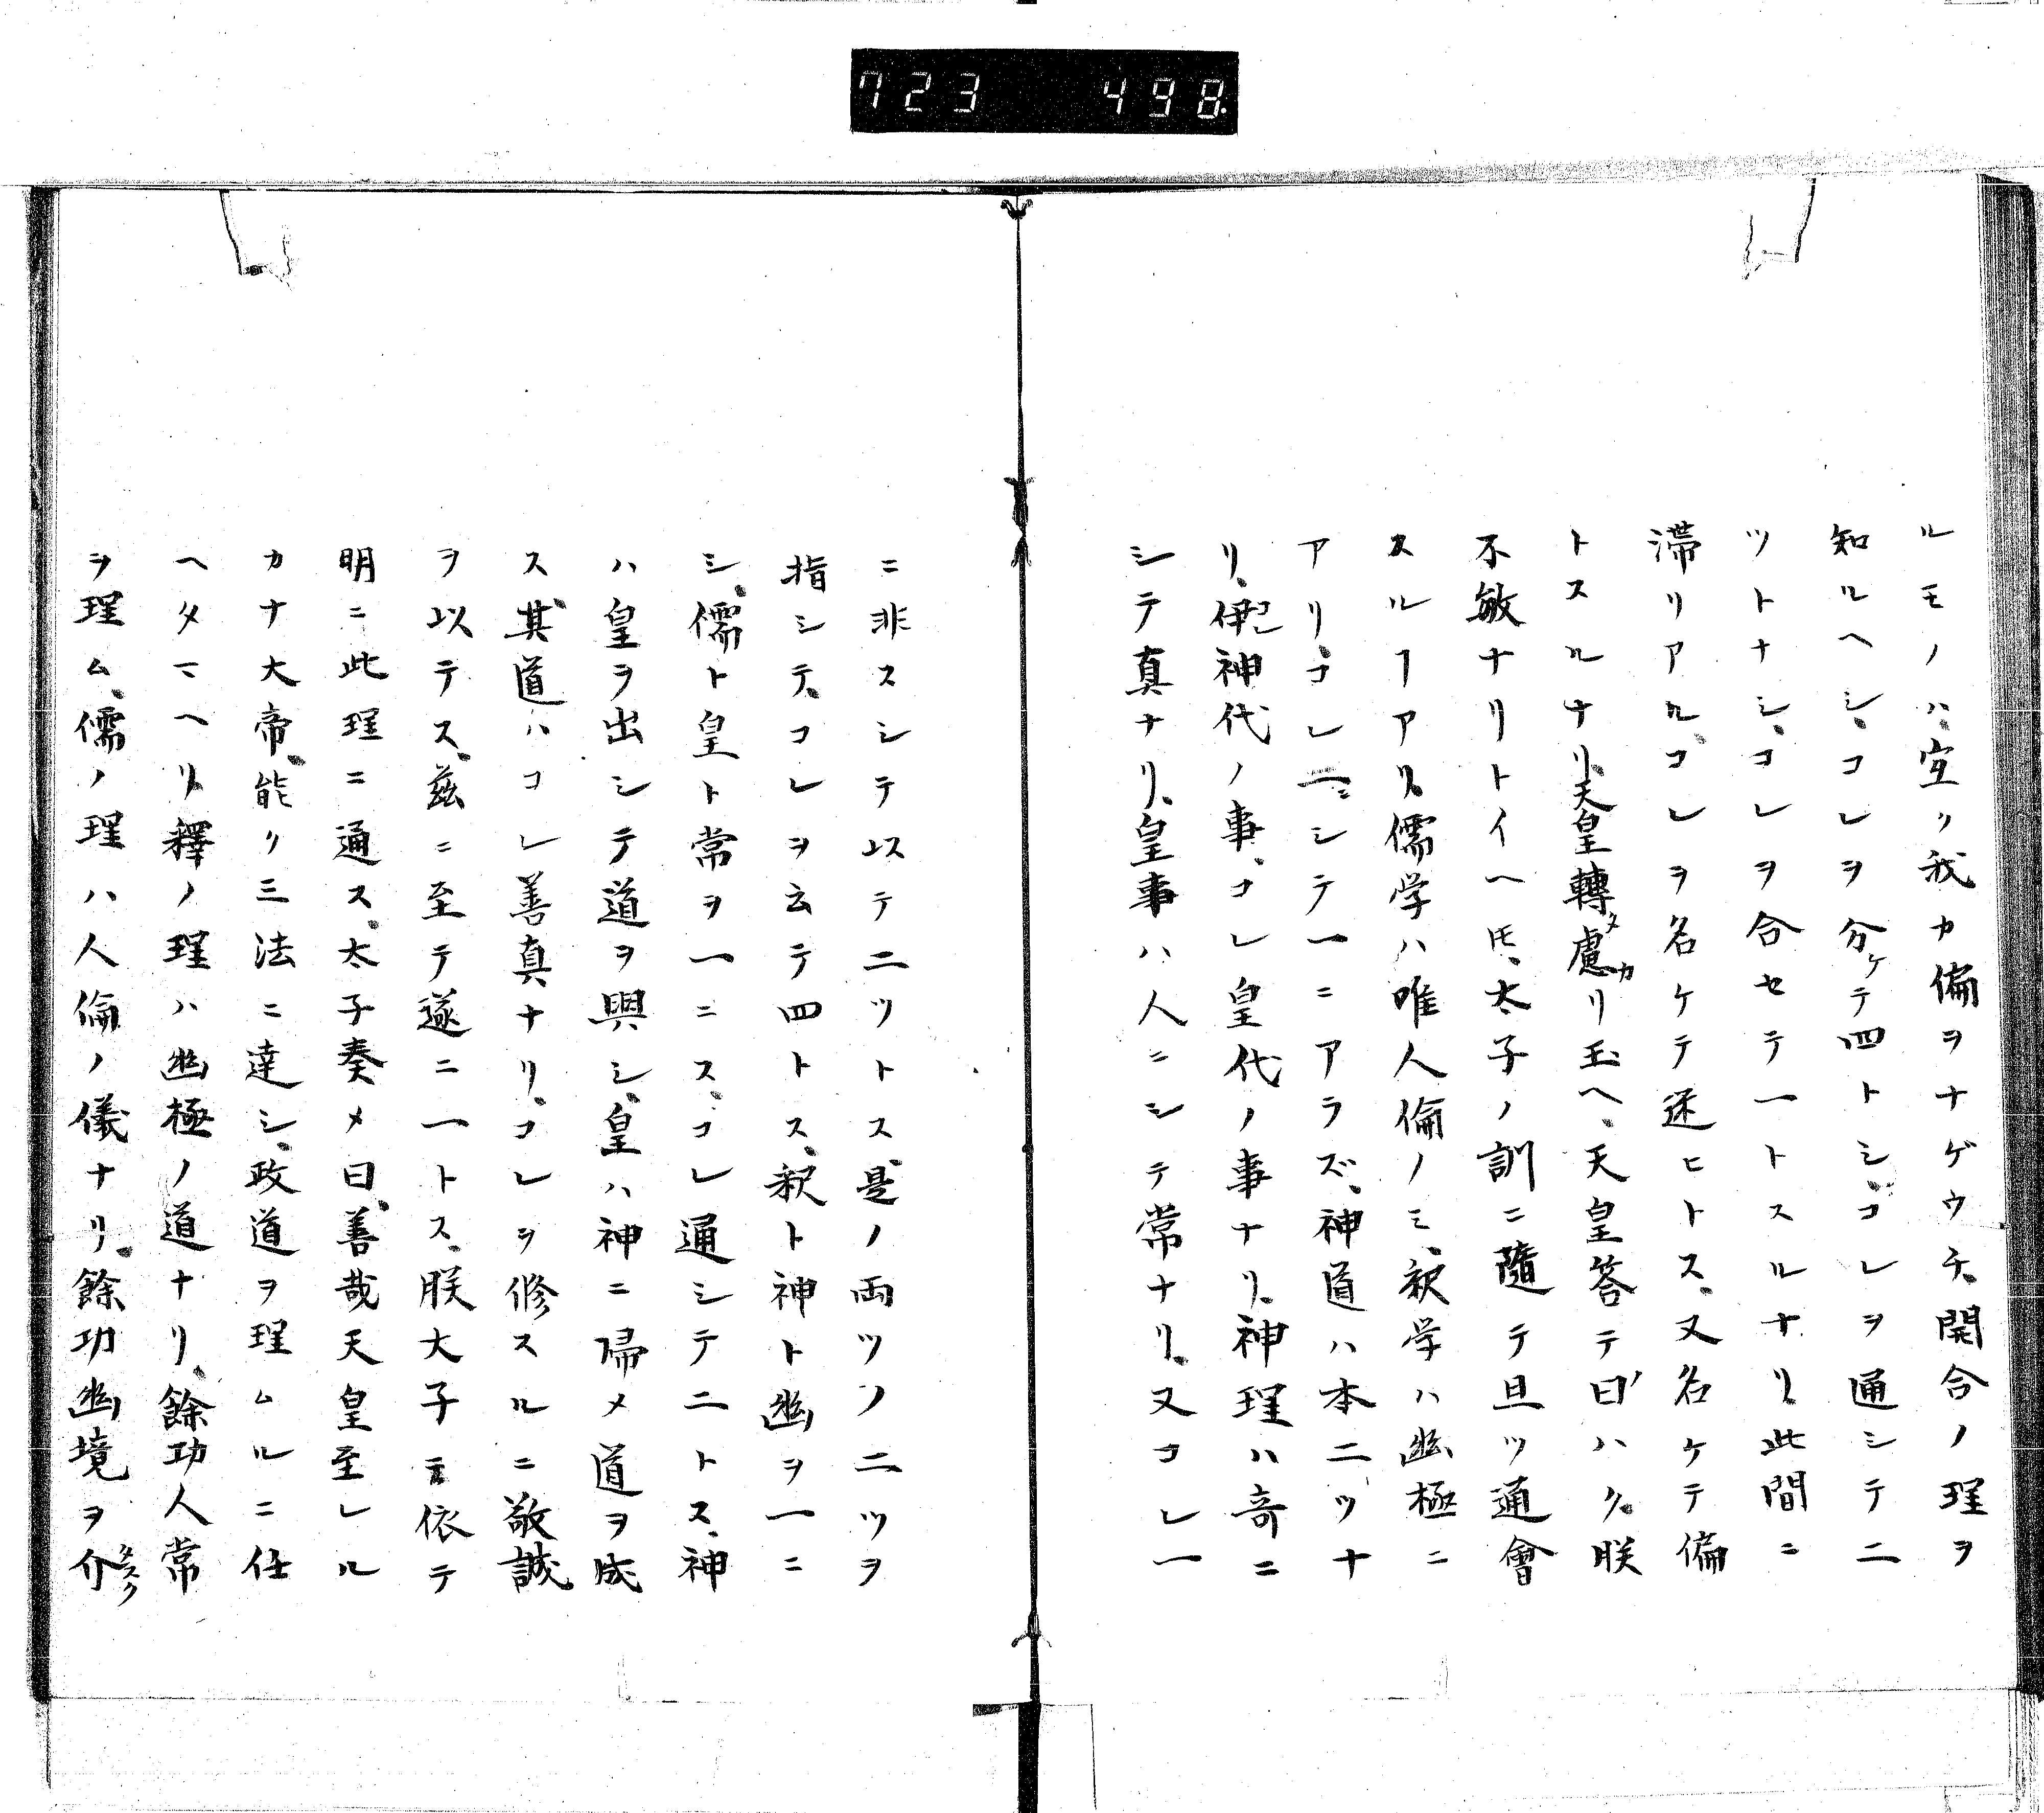 723 498.
ルモノハ、宜ク我カ偏ヲナゲウチ、開合ノ理ヲ
知ルヘシ、コレヲ分ケテ四トシ、コレヲ通シテ二
ツトナシ、コレヲ合セテ一トスルナリ、此間ニ
滞リアル、コレヲ名ケテ迷ヒトス、又名ケテ偏
トスルナリ、天皇轉慮リ玉ヘ、天皇答テ曰ハク、朕
不敏ナリトイヘ𪜈、太子ノ訓ニ隨テ且ツ通會
スルヿアリ、儒学ハ唯人倫ノミ、釈学ハ幽極ニ
アリ、コレ一ニシテ一ニアラズ、神道ハ本二ツナ
リ、神代ノ事、コレ皇代ノ事ナリ、神理ハ奇ニ
シテ真ナリ、皇事ハ人ニシテ常ナリ、又コレ一
ニ非スシテ以テ二ツトス、是ノ両ツノ二ツヲ
指シテ、コレヲ云テ四トス、釈ト神ト幽ヲ一ニ
シ、儒ト皇ト常ヲ一ニス、コレ通シテ二トス、神
ハ皇ヲ出シテ道ヲ興シ、皇ハ神ニ帰メ道ヲ成
ス、其道ハコレ善真ナリ、コレヲ修スルニ敬誠
ヲ以テス、茲ニ至テ遂ニ一トス、朕大子ニ依テ
明ニ此理ニ通ス、太子奏メ曰、善哉天皇至レル
カナ大帝、能ク三法ニ達シ、政道ヲ理ムルニ任
ヘタマヘリ、釋ノ理ハ幽極ノ道ナリ、餘功人常
ヲ理ム、儒ノ理ハ人倫ノ儀ナリ、餘功幽境ヲ介タスク